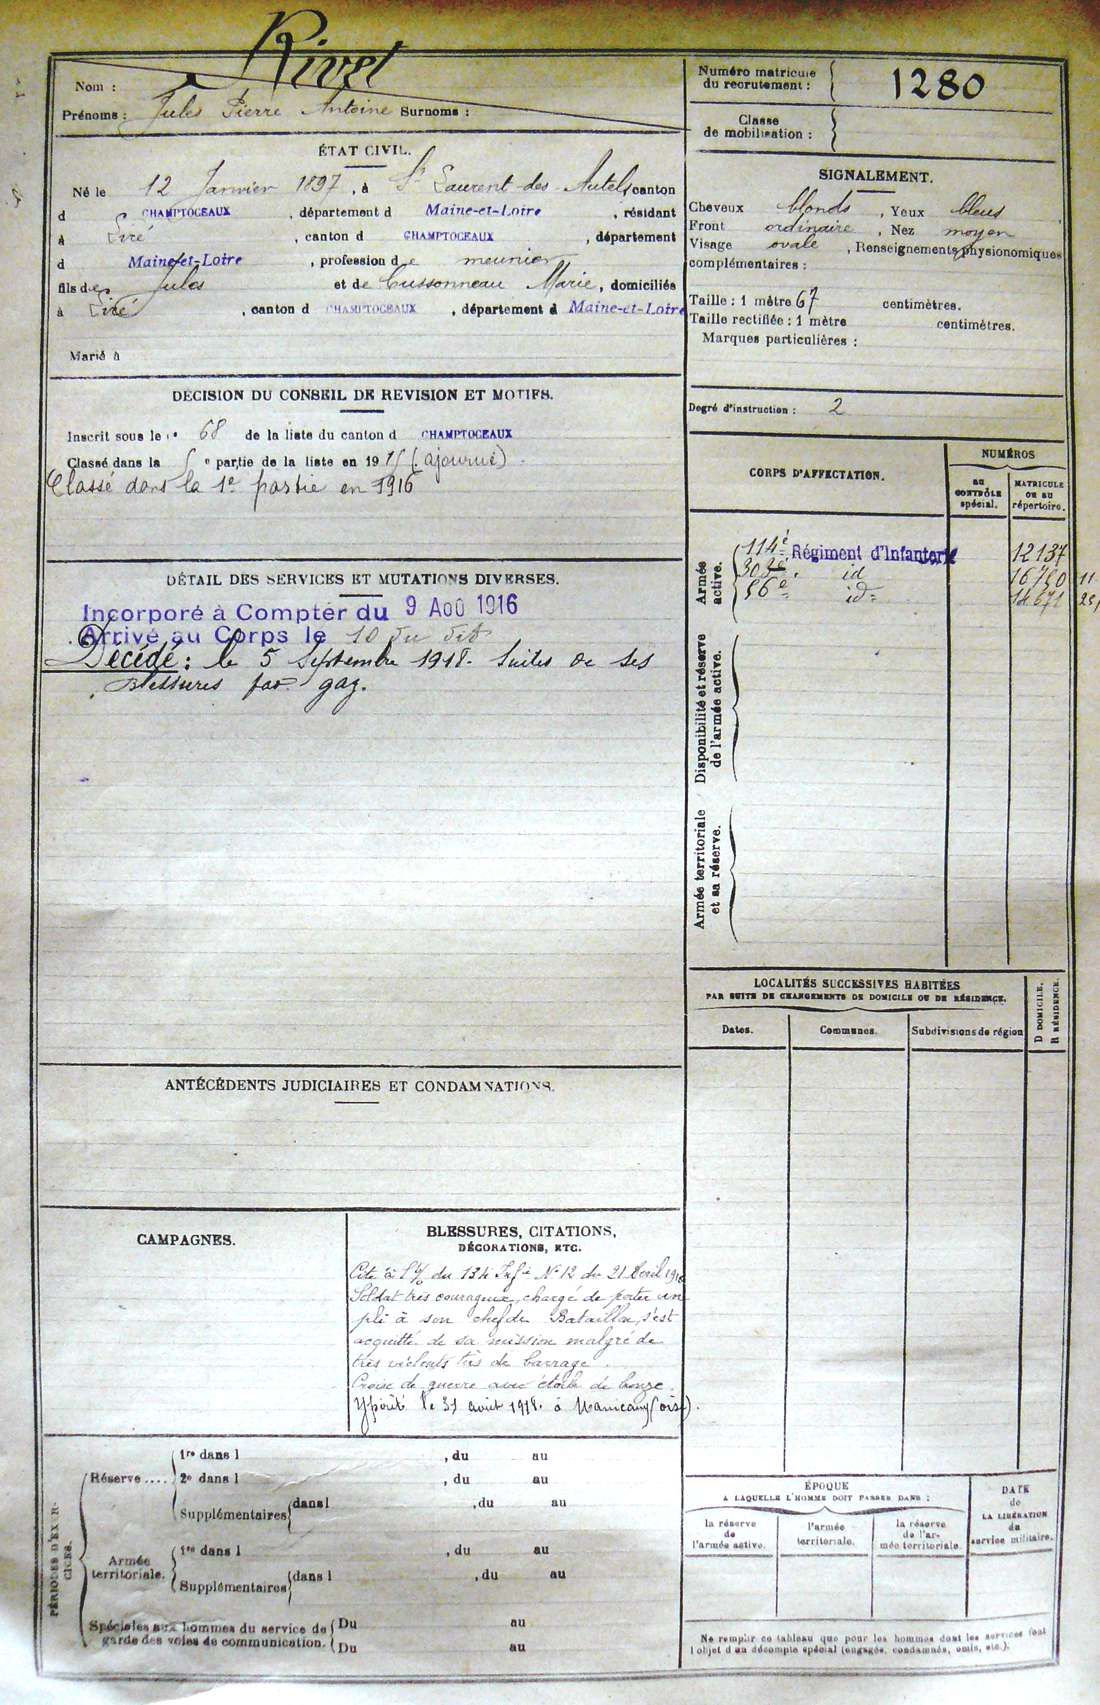 Nom : Rivet
Prénoms : Jules Pierre Antoine Surnoms :
ÉTAT CIVIL.
Né le 12 Janvier 1897, à St Laurent-des-Autels canton
d CHAMPTOCEAUX, département d Maine-et-Loire, résidant
à Liré, canton d CHAMPTOCEAUX, département
d Maine-et-Loire, profession de meunier
fils de Jules et de Cussonneau Marie, domiciliés
à Liré, canton d CHAMPTOCEAUX, département d Maine-et-Loire
Marié à
DÉCISION DU CONSEIL DE REVISION ET MOTIFS.
Inscrit sous le n° 68 de la liste du canton d CHAMPTOCEAUX
Classé dans la 5e partie de la liste en 1915 (ajourné)
Classé dans la 1e partie en 1916
DÉTAIL DES SERVICES ET MUTATIONS DIVERSES.
Incorporé à Compter du 9 Aoû 1916
Arrivé au Corps le 10 du dit
Décédé : le 5 Septembre 1918. Suites de ses
Blessures par gaz.
ANTÉCÉDENTS JUDICIAIRES ET CONDAMNATIONS.
CAMPAGNES.
BLESSURES, CITATIONS,
DÉCORATIONS, ETC.
Cité à l'o/ du 134 Infie N° 12 du 21 Avril 1918
Soldat très courageux, chargé de porter un
pli à son chef de Bataillon, s'est
acquitté de sa mission malgré de
très violents tirs de barrage.
Croix de guerre avec étoile de bronze.
Ypérité le 31 août 1918. à (Oise).
PÉRIODES D'EXERCICES.
Réserve ....
1re dans l , du au
2e dans l , du au
Supplémentaires dans l , du au
Armée
territoriale.
1re dans l , du au
Supplémentaires dans l , du au
Spéciales aux hommes du service de
garde des voies de communication.
Du au
Du au
Numéro matricule
du recrutement : 1280
Classe
de mobilisation :
SIGNALEMENT.
Cheveux blonds, Yeux bleus
Front ordinaire, Nez moyen
Visage ovale, Renseignements physionomiques
complémentaires :
Taille : 1 mètre 67 centimètres.
Taille rectifiée : 1 mètre centimètres.
Marques particulières :
Degré d'instruction : 2
CORPS D'AFFECTATION.
NUMÉROS
au
CONTRÔLE
spécial.
MATRICULE
OU AU
répertoire.
Armée
active.
114e Régiment d'Infanterie 12137
303e id 16750 11
56e id 14671
Disponibilité et réserve
de l'armée active.
Armée territoriale
et sa réserve.
LOCALITÉS SUCCESSIVES HABITÉES
PAR SUITE DE CHANGEMENTS DE DOMICILE OU DE RÉSIDENCE.
Dates.
Communes.
Subdivisions de région
D DOMICILE.
R RÉSIDENCE.
ÉPOQUE
A LAQUELLE L'HOMME DOIT PASSER DANS :
la réserve
de
l'armée active.
l'armée
territoriale.
la réserve
de l'ar-
mée territoriale.
DATE
de
LA LIBÉRATION
du
service militaire.
Ne remplir ce tableau que pour les hommes dont les services font
l'objet d'un décompte spécial (engagés, condamnés, omis, etc.).